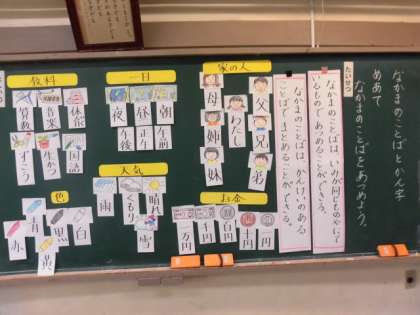 なかまのことばとかん字
めあて
なかまのことばをあつめよう。
たいせつ
なかまのことばは、
いるものであつめることができる。
なかまのことばは、かんけいのある
ことばでまとめることができる。
家の人
父
母
わたし
兄
姉
弟
妹
お金
一円
十円
百円
千円
一万円
一日
朝
昼
夜
午前
正午
午後
天気
晴れ
くもり
雨
雪
教科
体育
音楽
算数
国語
生活
ずこう
色
白
黒
青
赤
黄